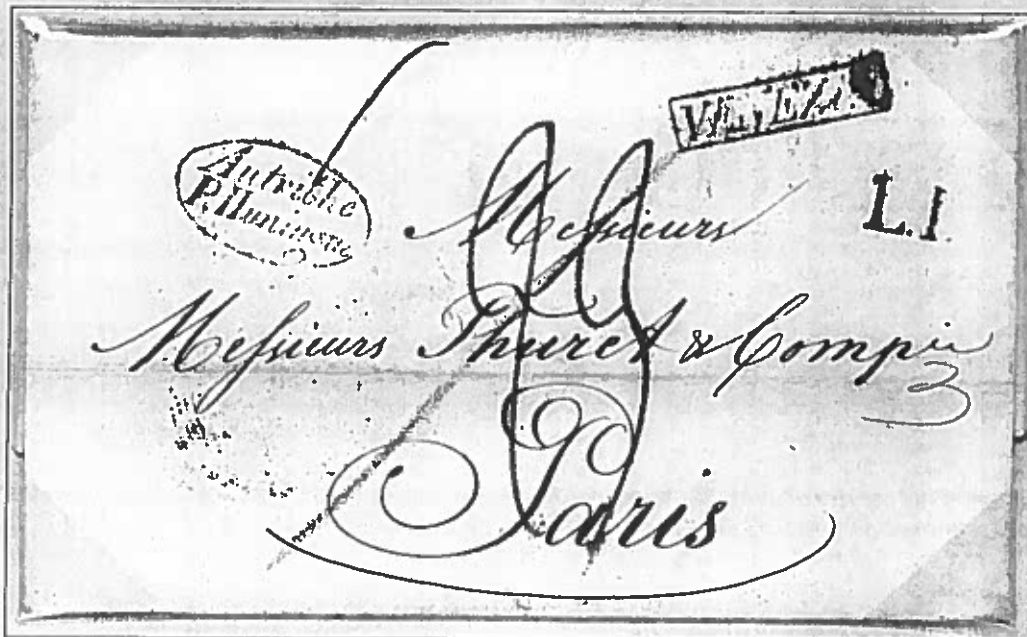 Autriche
P. Huningue
L.I.
Messieurs
Messieurs Thuret & Compie
3
Paris